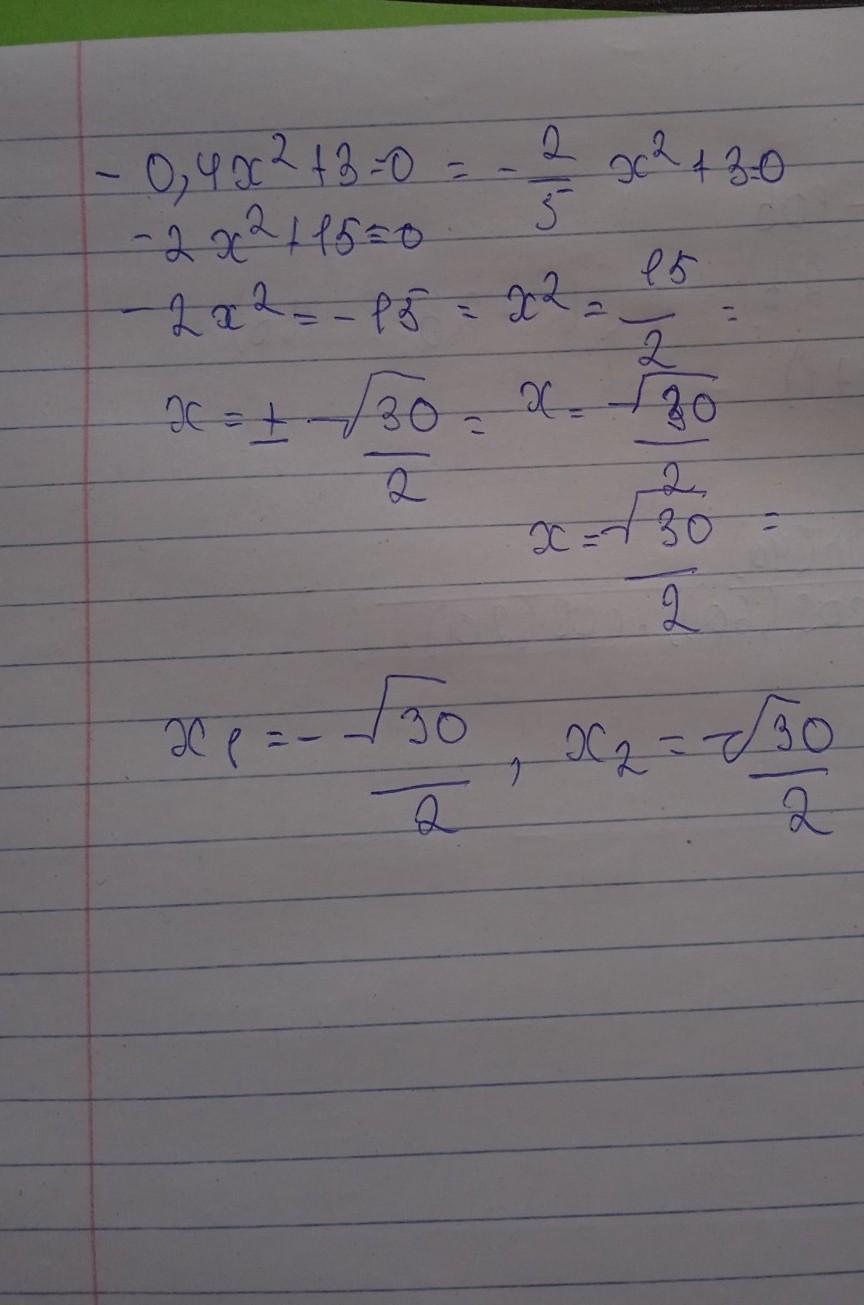 - 0,4x² + 3 = 0 = - 2/5 x² + 3 = 0
- 2x² + 15 = 0
- 2x² = - 15 = x² = 15/2 =
x = ± √30/2 = x = √30/2
x = √30/2 =
x₁ = - √30/2 , x₂ = √30/2